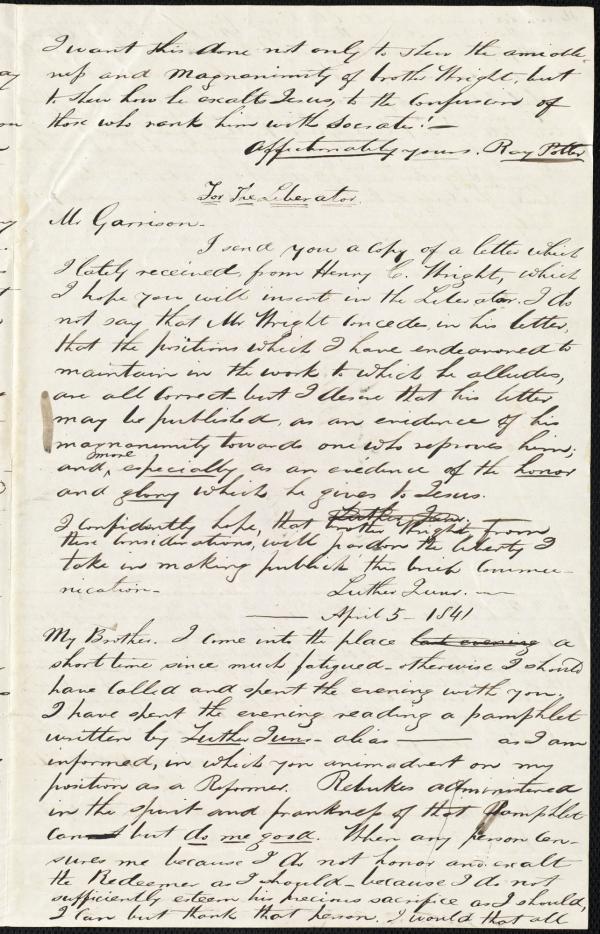 I want this done not only to shew the amiable-
ness and magnanimity of brother Wright, but
to shew how he exalts Jesus, to the confusion of
those who rank him with Socrates!—
Affectionately yours. Ray Potter
For The Liberator.
Mr Garrison.
I send you a copy of a letter which
I lately received, from Henry C. Wright, which
I hope you will insert in the Liberator. I do
not say that Mr Wright concedes, in his letter,
that the positions which I have endeavored to
maintain in the work to which he alludes,
are all correct- but I desire that his letter
may be published, as an evidence of his
magnanimity towards one who reproves him;
and, more especially as an evidence of the honor
and glory which he gives to Jesus.
Luther Junr.
I confidently hope, that brother Wright, from
these considerations, will pardon the liberty I
take in making publick this brief commu-
nication-
Luther Junr. —
April 5 - 1841
My Brother. I come into the place last evening a
short time since much fatigued- otherwise I should
have called and spent the evening with you.
I have spent the evening reading a pamphlet
written by Luther Junr- alias —— as I am
informed, in which you animadvert on my
position as a Reformer. Rebukes administered
in the spirit and frankness of that Pamphlet
cannot but do me good. When any person cen-
sures me because I do not honor and exalt
the Redeemer as I should- because I do not
sufficiently esteem his precious sacrifice as I should,
I can but thank that person. I would that all